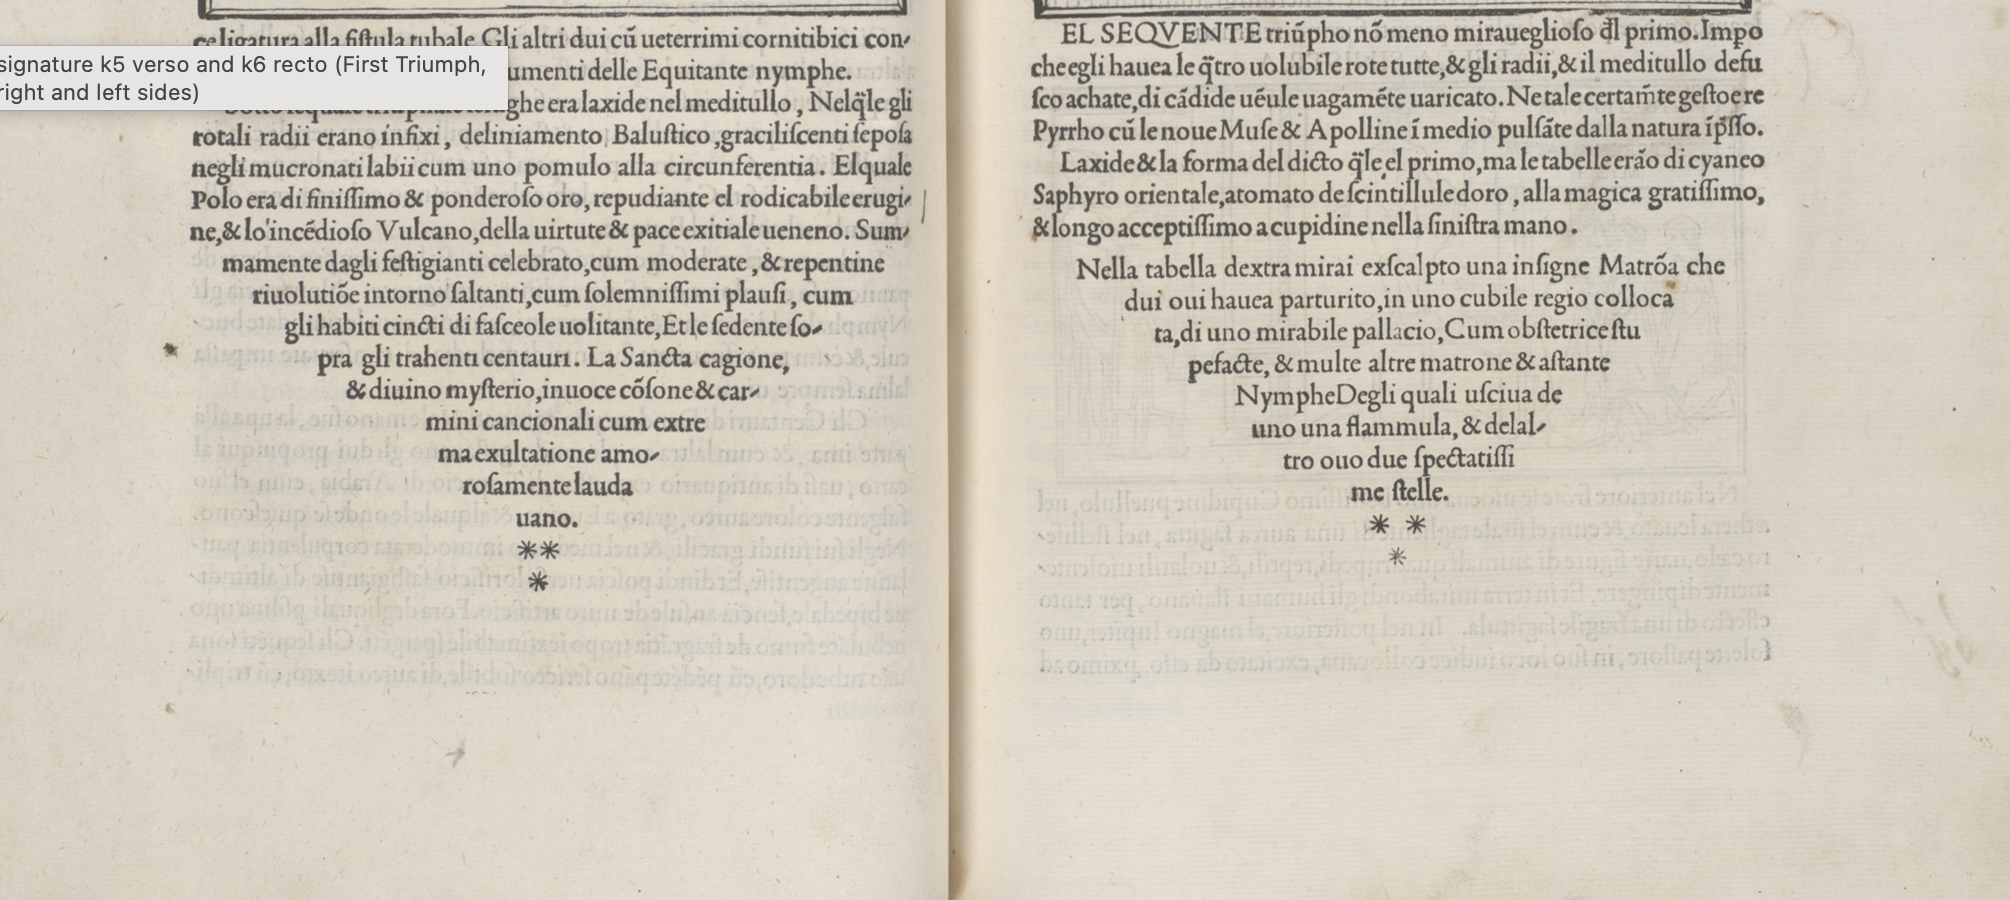 ce ligatura alla fiſtula tubale Gli altri dui cũ ueterrimi cornitibici con-
signature k5 verso and k6 recto (First Triumph,
right and left sides)
umenti delle Equitante nymphe.
ghe era laxide nel meditullo, Nelq̃le gli
rotali radii erano infixi, deliniamento Baluſtico, graciliſcenti ſepoſa
negli mucronati labii cum uno pomulo alla circunferentia. Elquale
Polo era di finiſſimo & ponderoſo oro, repudiante el rodicabile erugi-
ne, & lo'incẽdioſo Vulcano, della uirtute & pace exitiale ueneno. Sum-
mamente dagli feſtigianti celebrato, cum moderate, & repentine
riuolutiõe intorno ſaltanti, cum ſolemniſſimi plauſi, cum
gli habiti cincti di faſceole uolitante, Et le ſedente ſo-
pra gli trahenti centauri. La Sancta cagione,
& diuino myſterio, inuoce cõſone & car-
mini cancionali cum extre
ma exultatione amo-
roſamente lauda
uano.
**
*
EL SEQVENTE triũpho nõ meno miraueglioſo dl primo. Impo
che egli hauea le q̃tro uolubile rote tutte, & gli radii, & il meditullo defu
ſco achate, di cãdide uẽule uagamẽte uaricato. Ne tale certam̃te geſtoe re
Pyrrho cũ le noue Muſe & Apolline ĩ medio pulſãte dalla natura ĩp̃ſſo.
Laxide & la forma del dicto q̃le el primo, ma le tabelle erão di cyaneo
Saphyro orientale, atomato de ſcintillule doro, alla magica gratiſſimo,
& longo acceptiſſimo a cupidine nella ſiniſtra mano.
Nella tabella dextra mirai exſcalpto una inſigne Matrõa che
dui oui hauea parturito, in uno cubile regio colloca
ta, di uno mirabile pallacio, Cum obſtetrice ſtu
pefacte, & multe altre matrone & aſtante
Nymphe Degli quali uſciua de
uno una flammula, & delal-
tro ouo due ſpectatiſſi
me ſtelle.
* *
*